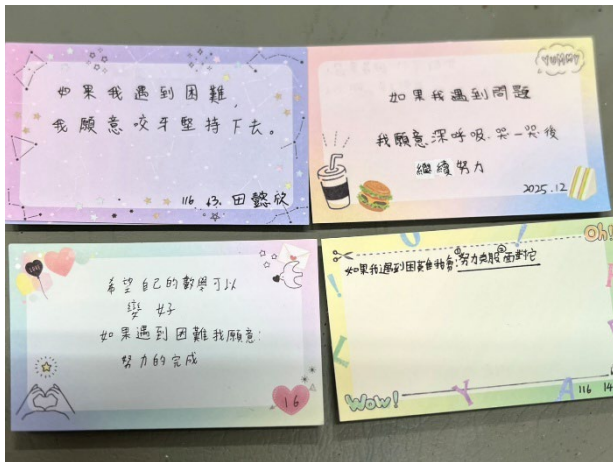 如果我遇到困難,
我願意咬牙堅持下去。
116 63. 田懿欣
YUMMY
如果我遇到問題
我願意深呼吸.哭一哭後
繼續努力
2025.12
LOVE
希望自己的數學可以
變好
如果遇到困難我願意:
努力的完成
16
Oh!
如果我遇到困難我會:①努力克服②面對它
Wow!
116 14